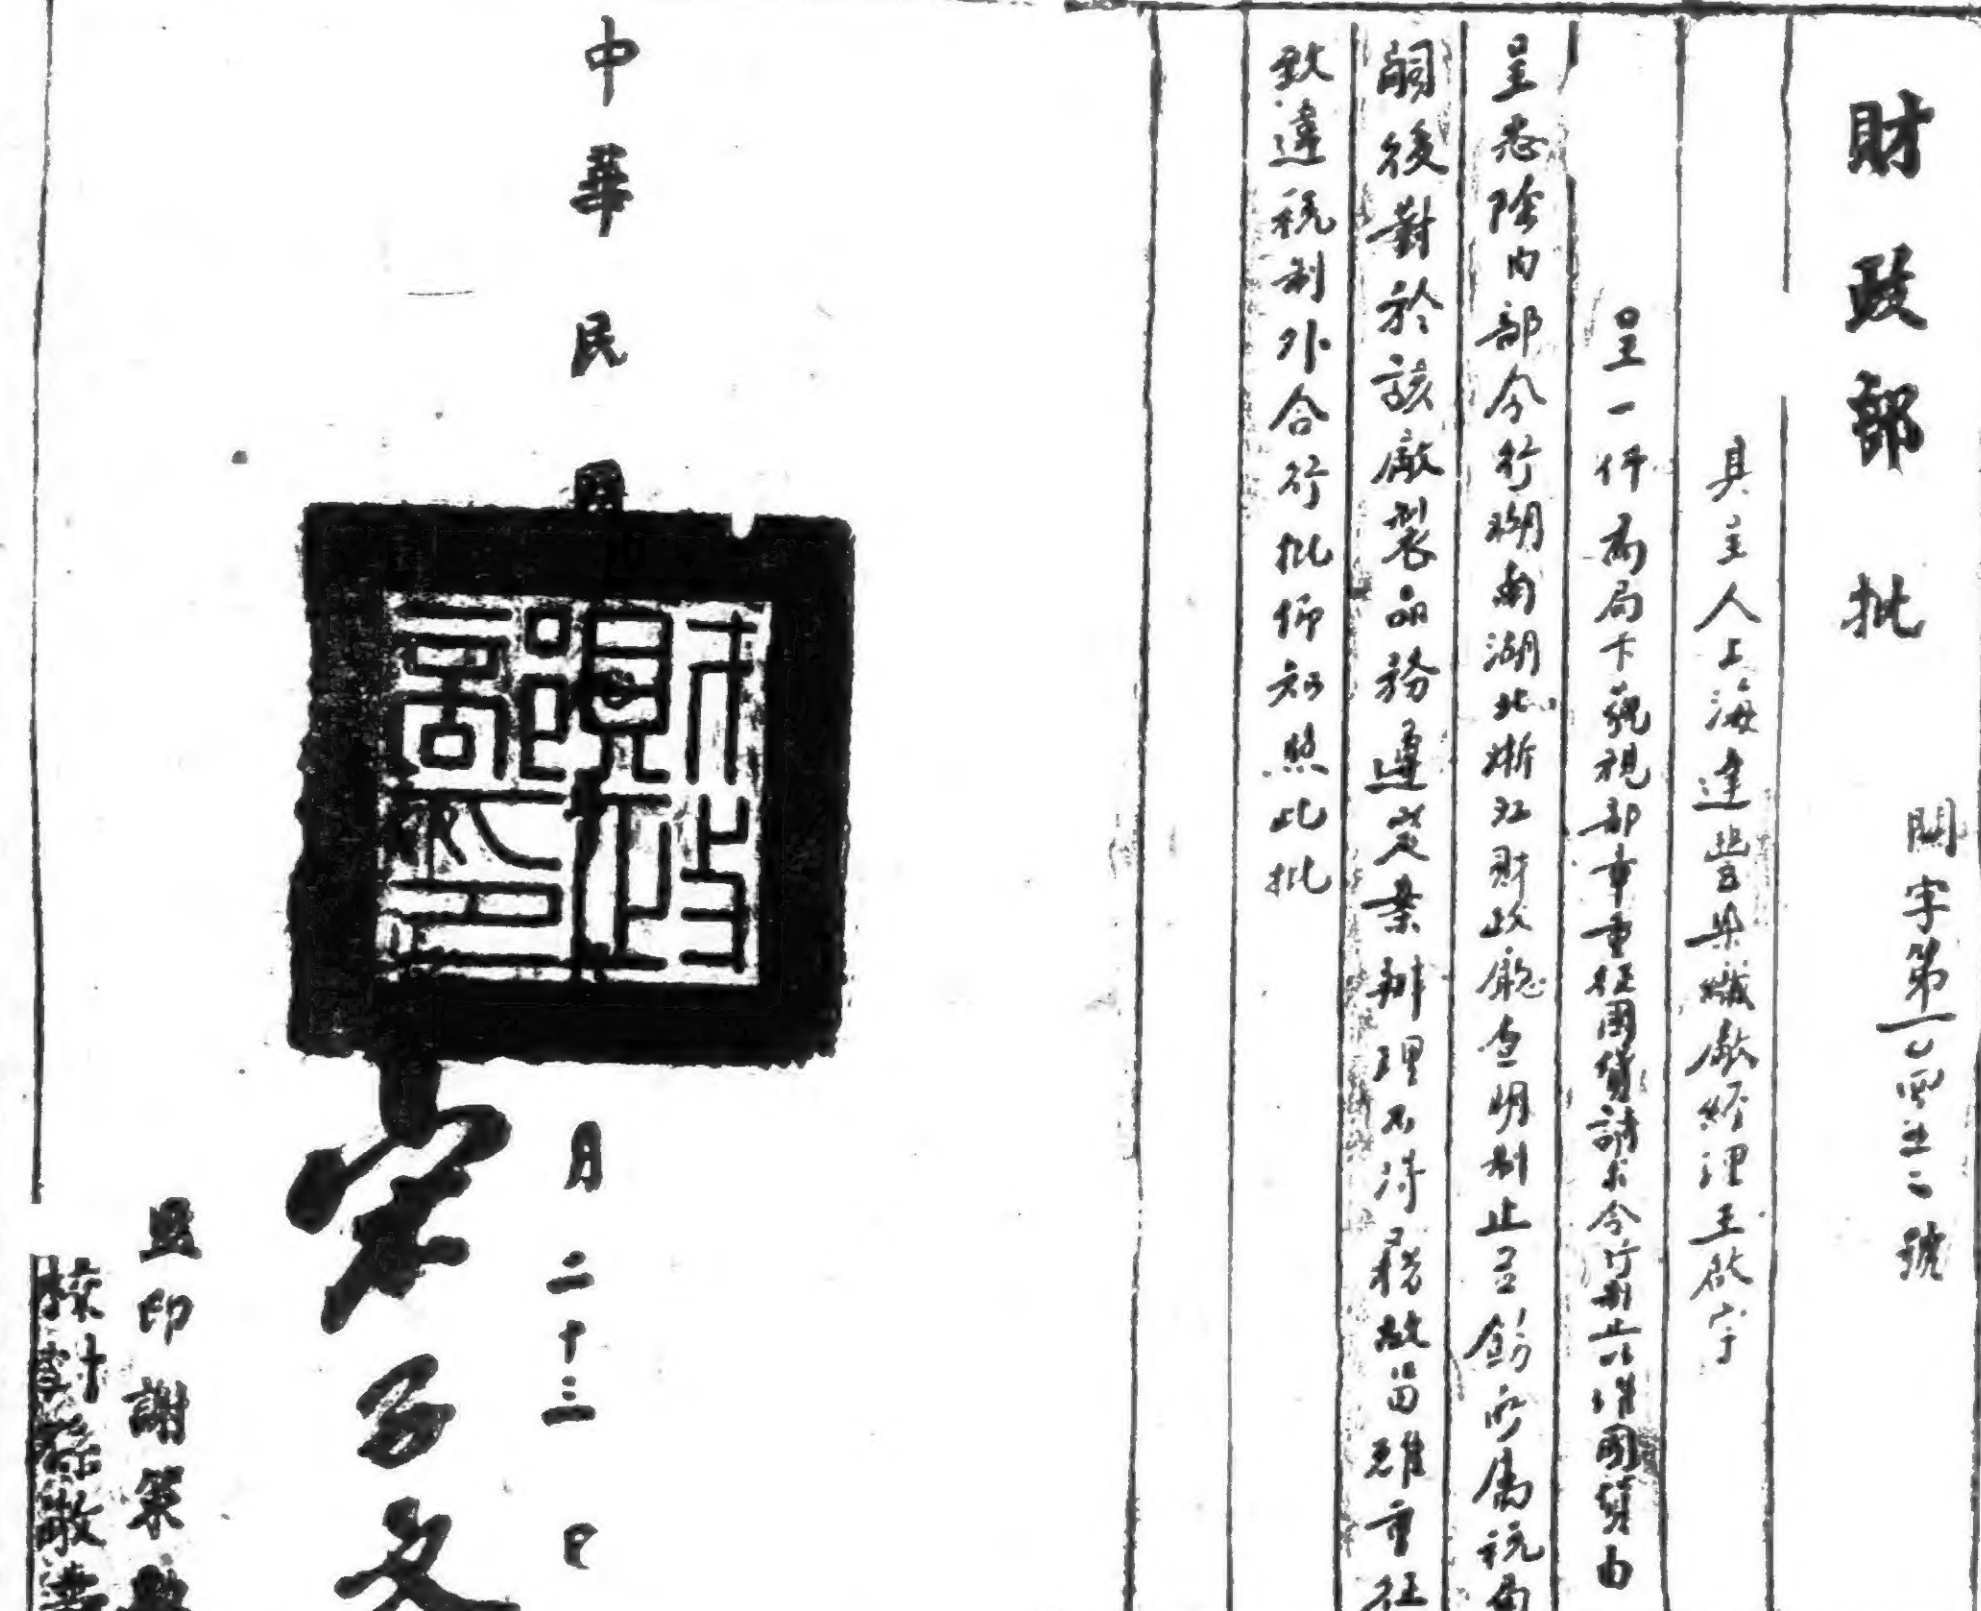 財政部批
關字第一七四五二號
具主人上海達豐染織廠經理王啟宇
呈一件為局卡藐視部章重征國貨請求令行制止以維國貨由
呈悉除由部令行湖南湖北浙江財政廳查明制止並飭所屬稅局
嗣後對於該廠製品務遵定案辦理不得藉故留難重征
致違稅制外合行批仰知照此批
中華民國
月二十三日
財政部印
宋子文
監印謝策
校對孫敬